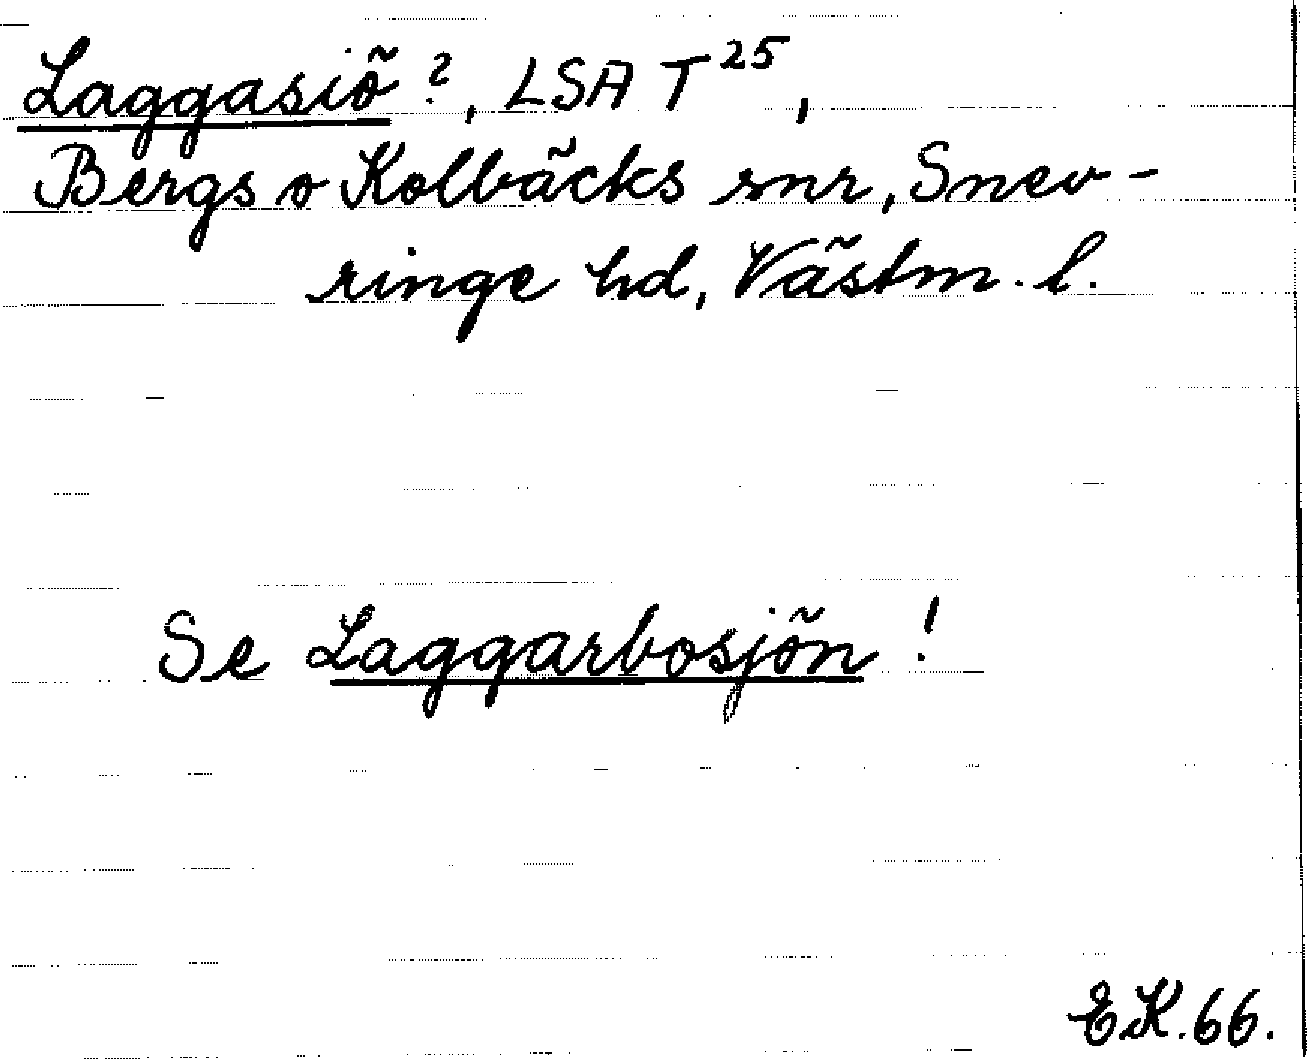 Laggasiö?, LSA T25,
Bergs o Kolbäcks snr, Snev-
ringe hd, Västm. l.
Se Laggarbosjön!
EK. 66.